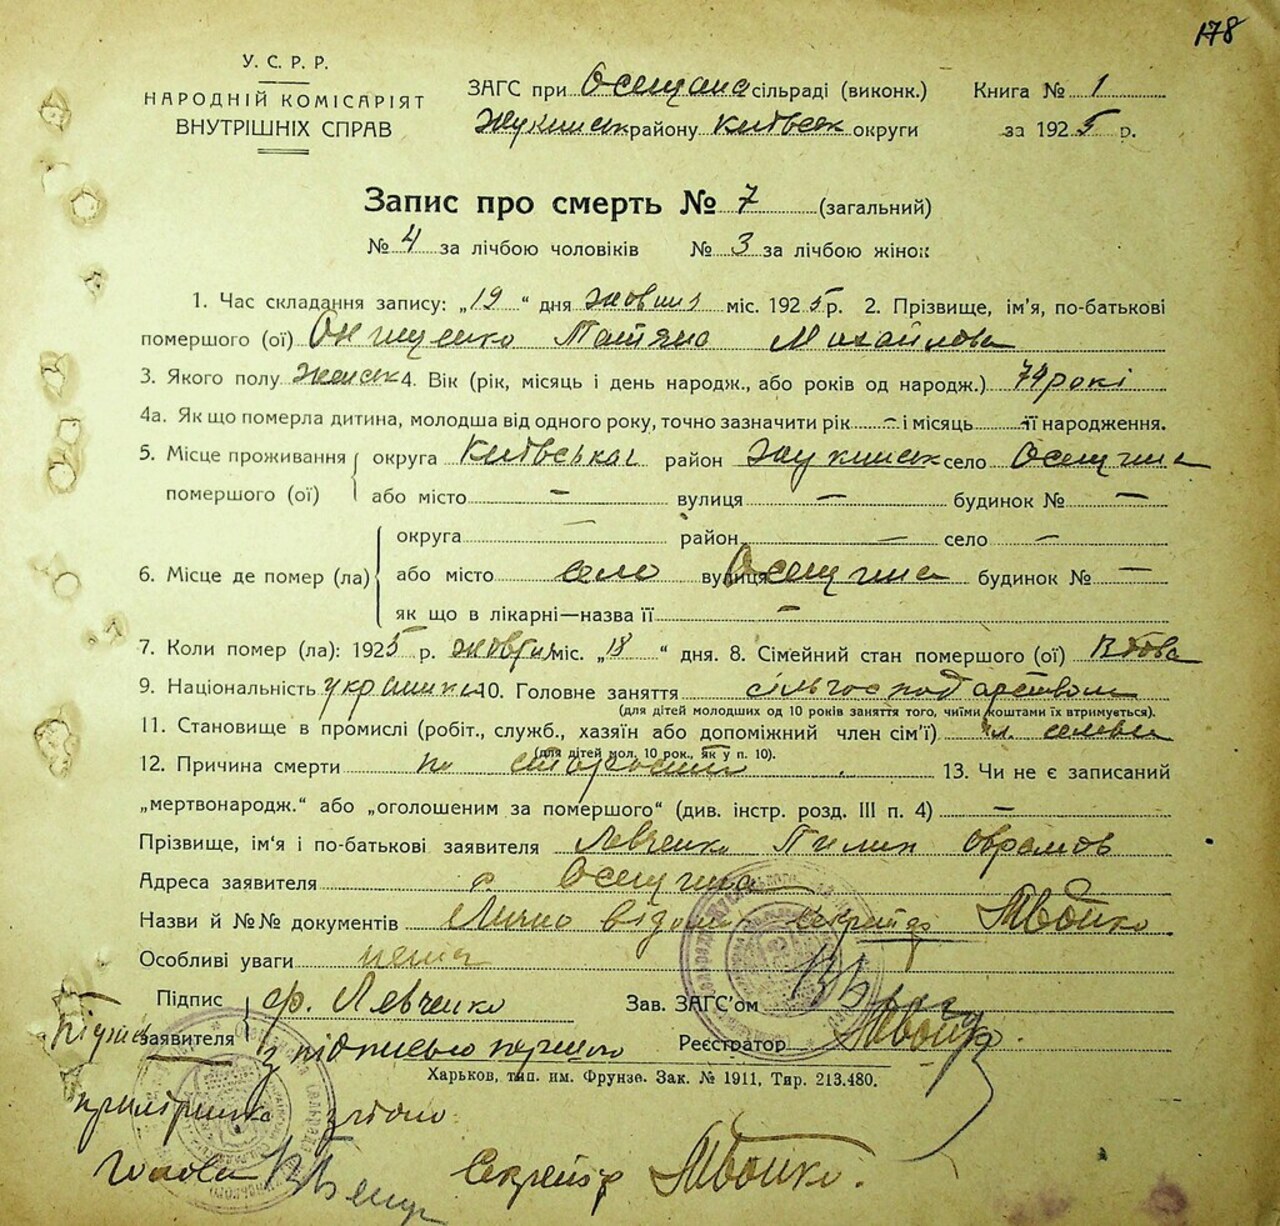 178
У. С. Р. Р.
НАРОДНІЙ КОМІСАРІЯТ
ВНУТРІШНІХ СПРАВ
ЗАГС при Осещина сільраді (виконк.) Книга № 1
району Київськ округи за 1925 р.
Запис про смерть № 7 (загальний)
№ 4 за лічбою чоловіків № 3 за лічбою жінок
1. Час складання запису: „19“ дня міс. 1925 р. 2. Прізвище, ім'я, по-батькові
помершого (ої) Онищенко Татяна Михайлова
3. Якого полу женськ 4. Вік (рік, місяць і день народж., або років од народж.) 74 рокі
4а. Як що померла дитина, молодша від одного року, точно зазначити рік — і місяць — її народження.
5. Місце проживання округа Київська район село Осещина
помершого (ої) або місто — вулиця — будинок № —
округа — район — село —
6. Місце де помер (ла) або місто село вулиця Осещина будинок № —
як що в лікарні—назва її —
7. Коли помер (ла): 1925 р. жовтня міс. „18“ дня. 8. Сімейний стан помершого (ої) Вдова
9. Національність українка 10. Головне заняття сільгосподарством
(для дітей молодших од 10 років заняття того, чиїми коштами їх втримується).
11. Становище в промислі (робіт., служб., хазяїн або допоміжний член сім'ї) чл. семьи
(для дітей мол. 10 рок., як у п. 10).
12. Причина смерти по старости 13. Чи не є записаний
„мертвонародж.“ або „оголошеним за помершого“ (див. інстр. розд. III п. 4) —
Прізвище, ім'я і по-батькові заявителя Левченко Пилип Оврамов
Адреса заявителя с Осещина
Назви й №№ документів Лично відомий секретар МБойко
Особливі уваги нема
Підпис ф. Левченко Зав. ЗАГС'ом
Підпис заявителя з підписью Реєстратор МБойко.
Харьков, тип. им. Фрунзе. Зак. № 1911, Тир. 213.480.
згідно
Голова Секретар МБойко.